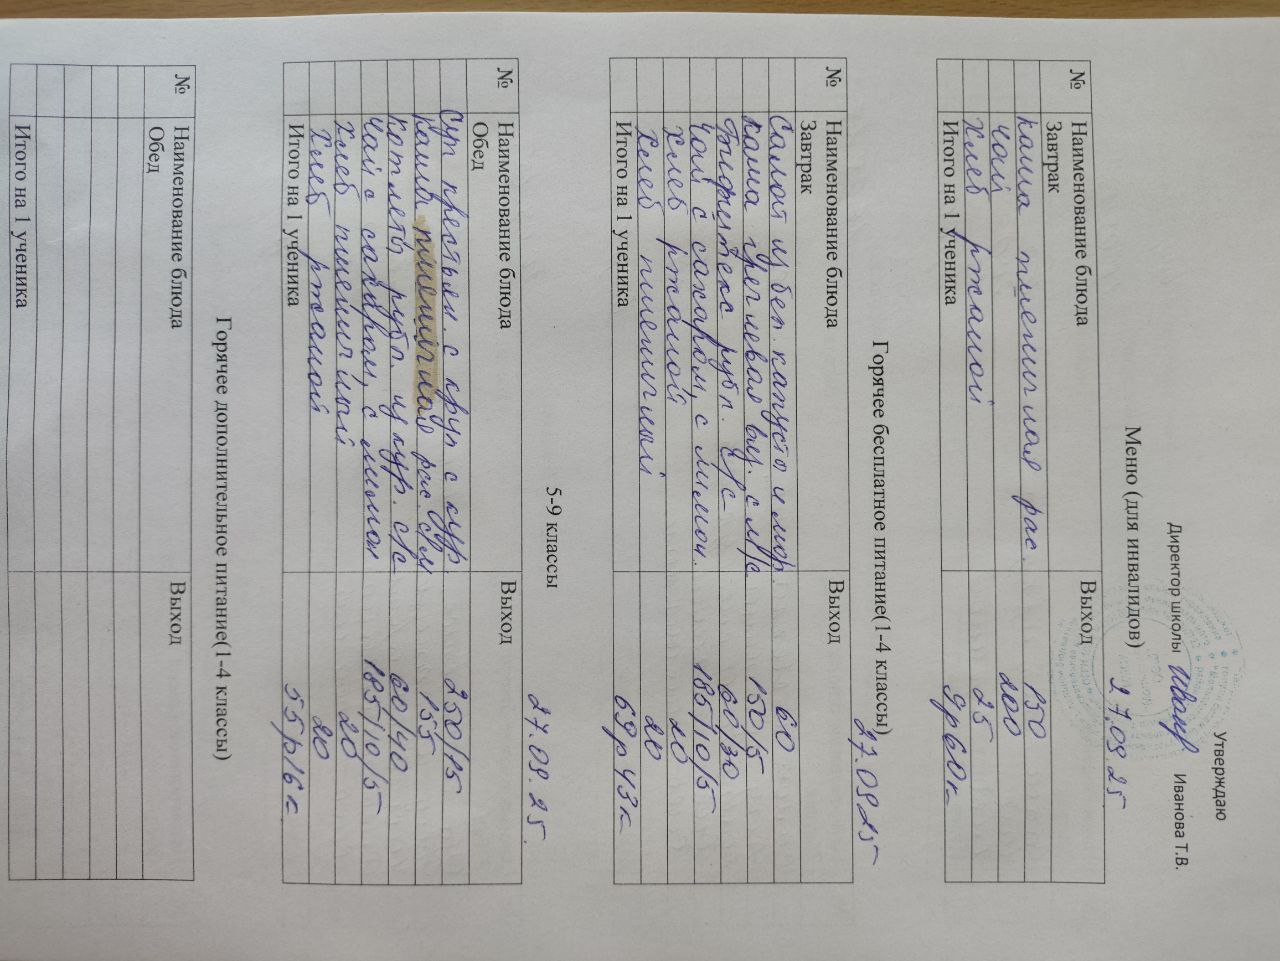 Утверждаю
Директор школы Иванова Т.В.
Меню (для инвалидов) 27.09.25
№ Наименование блюда Выход
Завтрак
каша пшеничная рас. 150
чай 200
хлеб ржаной 25
Итого на 1 ученика 9р60к
Горячее бесплатное питание(1-4 классы)
27.09 25
№ Наименование блюда Выход
Завтрак
Салат из бел. капусты и мор. 60
каша гречневая вяз. с м/с 150/5
Бифштекс рубл. с/с 60/30
чай с сахаром, с лимон. 185/10/5
хлеб ржаной 20
Хлеб пшеничный 20
Итого на 1 ученика 69р43к
5-9 классы 27.09.25.
№ Наименование блюда Выход
Обед
Суп крестьян. с круп с кур. 250/15
каша пшеничная рас. с/м 155
котлеты рубл. из кур. с/с 60/40
чай с сахаром, с лимон 185/10/5
хлеб пшеничный 20
Хлеб ржаной 20
Итого на 1 ученика 55р16к
Горячее дополнительное питание(1-4 классы)
№ Наименование блюда Выход
Обед
Итого на 1 ученика